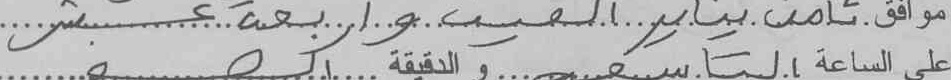 موافق ثامن يناير الفين و اربعة عشر
على الساعة التاسعة و الدقيقة